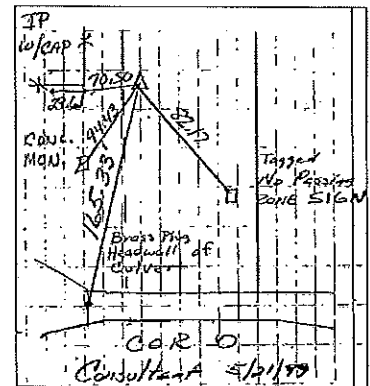 IP
W/CAP
70.50
23.61
CONC.
MON.
94.43
82.17
165.33
Tagged
No Passing
ZONE SIGN
Brass Plug
Headwall of
Culvert
COR O
Consultant 5/21/99